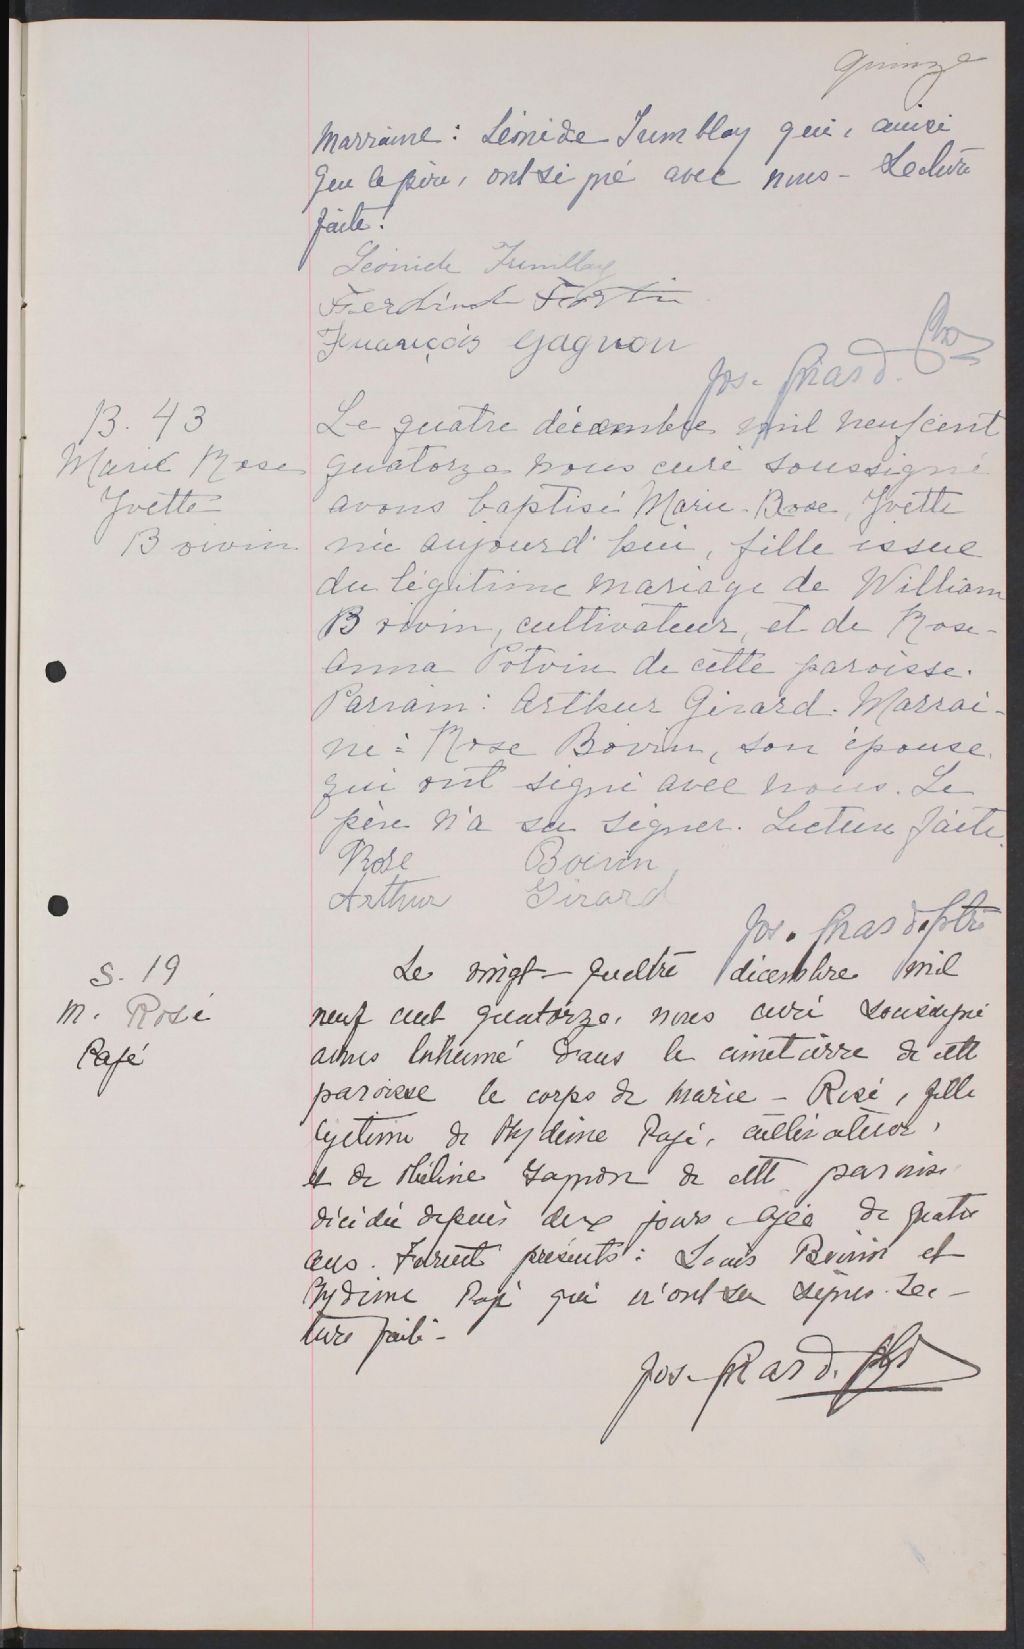 quinze
Marraine: Léonide Tremblay qui, ainsi
que le père, ont signé avec nous - Lecture
faite.
Léonide Tremblay
Ferdinand Fortin
François Gagnon
Jos. Girard. Ptre
B. 43
Marie Rose
Yvette
Boivin
Le quatre décembre mil neuf cent
quatorze nous curé soussigné
avons baptisé Marie-Rose, Yvette
née aujourd'hui, fille issue
du légitime mariage de William
Boivin, cultivateur, et de Rose-
Anna Potvin de cette paroisse.
Parrain: Arthur Girard. Marrai-
ne: Rose Boivin, son épouse
qui ont signé avec nous. Le
père n'a su signer. Lecture faite.
Rose Boivin
Arthur Girard
Jos. Girard. Ptre
S. 19
M. Rosé
Pagé
Le vingt-quatre décembre mil
neuf cent quatorze, nous curé soussigné
avons inhumé dans le cimetière de cette
paroisse le corps de Marie-Rosé, fille
légitime de Pagé, cultivateur,
et de Gagnon de cette paroisse
décédée depuis deux jours âgée de quatre
ans. Furent présents: Louis Boivin et
Pagé qui n'ont su signer. Lec-
ture faite -
Jos. Girard. Ptre